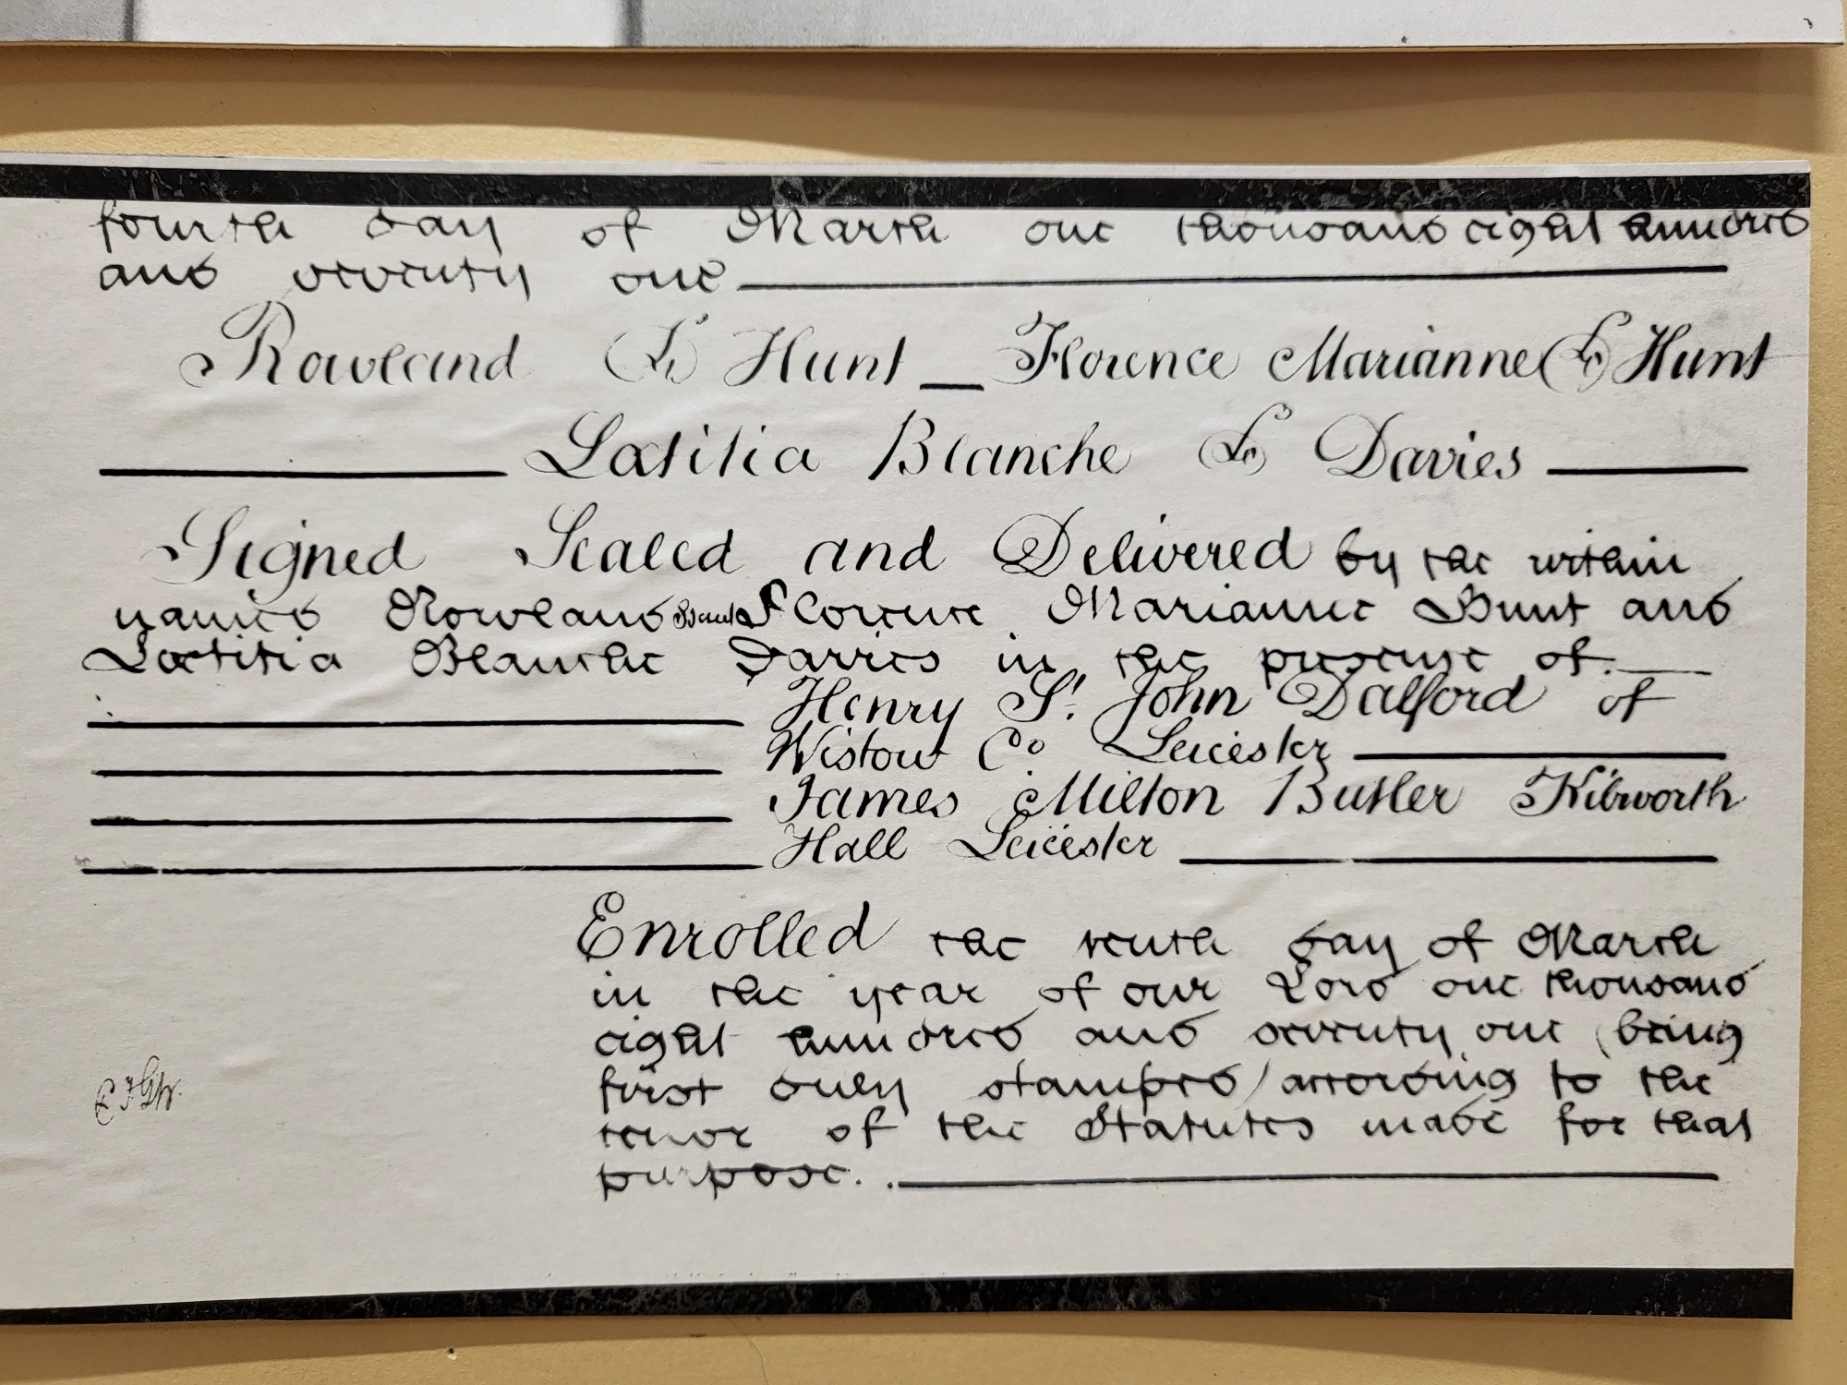 fourth day of March one thousand eight hundred
and seventy one
Rowland LS Hunt Florence Marianne LS Hunt
Lætitia Blanche LS Davies
Signed Sealed and Delivered by the within
named Rowland Hunt Florence Marianne Hunt and
Lætitia Blanche Davies in the presence of.
Henry St. John Halford of
Wistow Co Leicester
James Milton Butler Kibworth
Hall Leicester
Enrolled the tenth day of March
in the year of our Lord one thousand
eight hundred and seventy one (being
first duly stamped) according to the
tenor of the Statutes made for that
purpose.